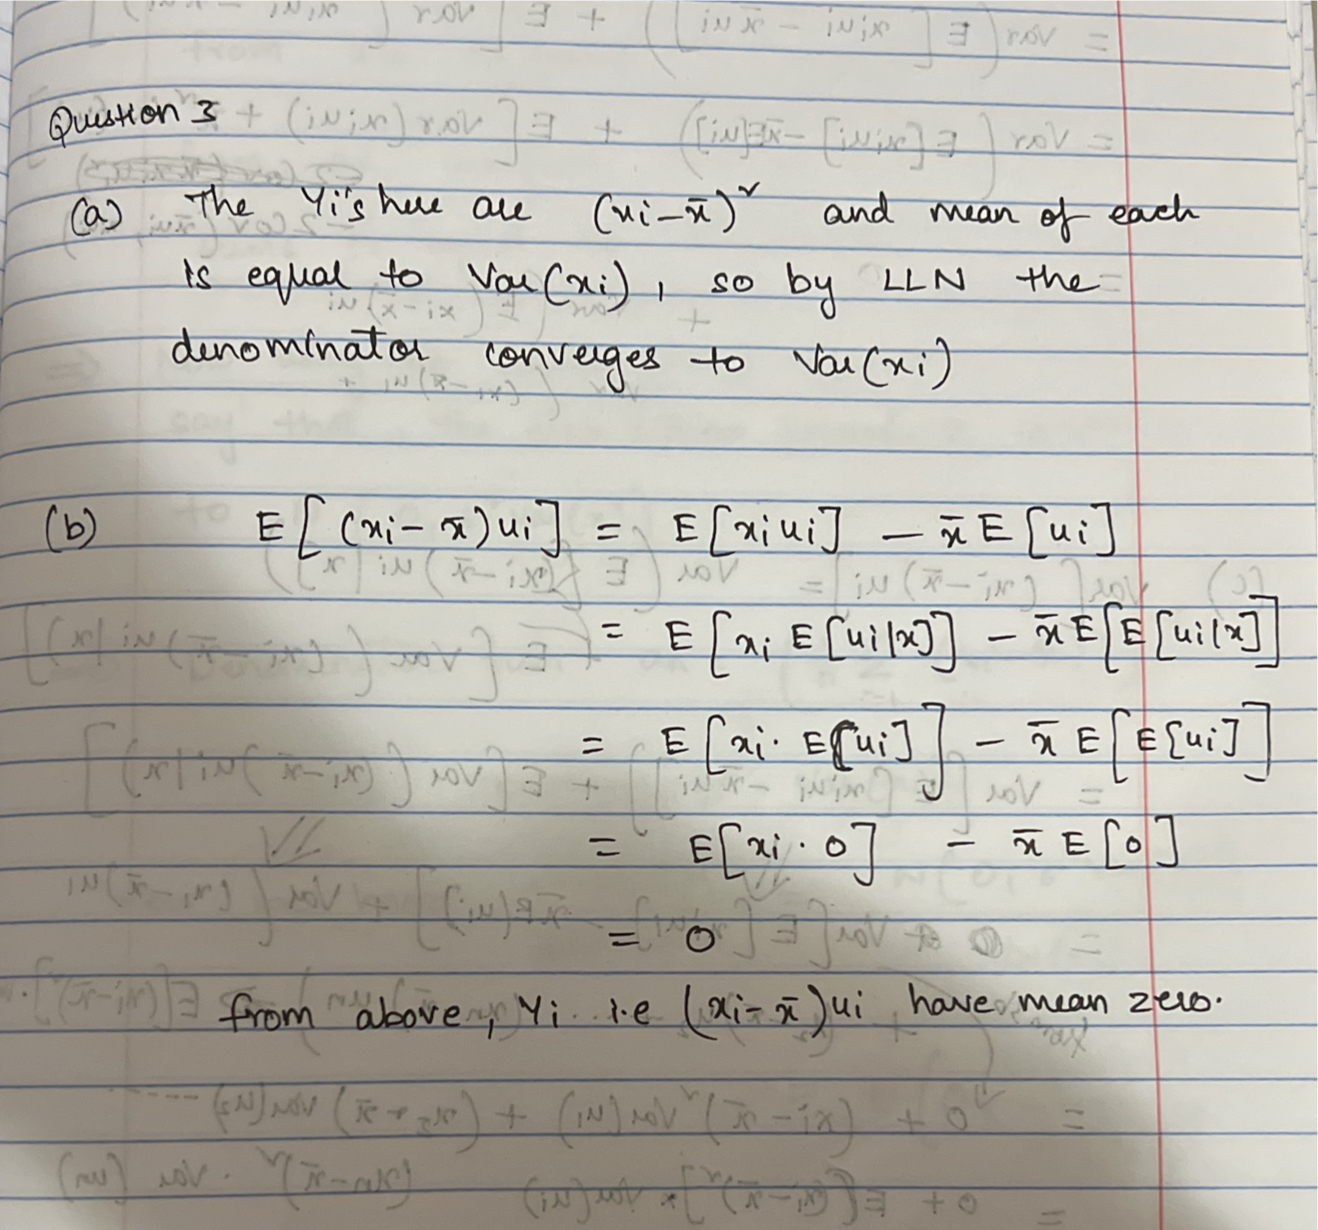 Question 3
(a) The Yi's here are (xi – x̄)² and mean of each
is equal to Var(xi), so by LLN the
denominator converges to Var(xi)
(b) E[(xi – x̄)ui] = E[xiui] – x̄E[ui]
= E[xi E[ui|x]] – x̄E[E[ui|x]]
= E[xi · E[ui]] – x̄ E[E[ui]]
= E[xi · 0] – x̄ E[0]
= 0
from above, Yi i.e (xi – x̄)ui have mean zero.